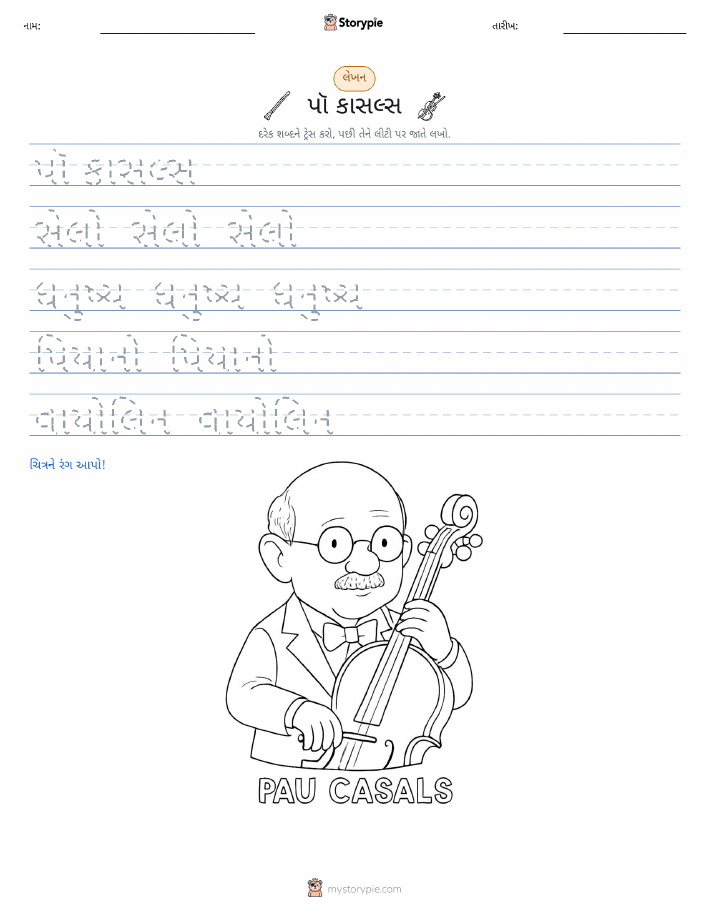 નામ:
Storypie
તારીખ:
લેખન
પૉ કાસલ્સ
દરેક શબ્દને ટ્રેસ કરો, પછી તેને લીટી પર જાતે લખો.
પૉ કાસલ્સ
સેલો સેલો સેલો
ધનુષ્ય ધનુષ્ય ધનુષ્ય
પિયાનો પિયાનો
વાયોલિન વાયોલિન
ચિત્રને રંગ આપો!
PAU CASALS
mystorypie.com